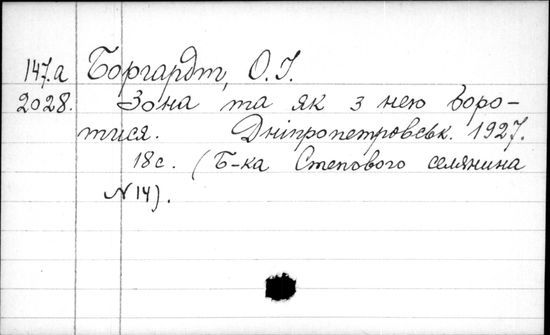 147.а Боргардт, О.І.
2028. Зона та як з нею боро-
тися. Дніпропетровськ. 1927.
18с. (Б-ка Степового селянина
N 14).